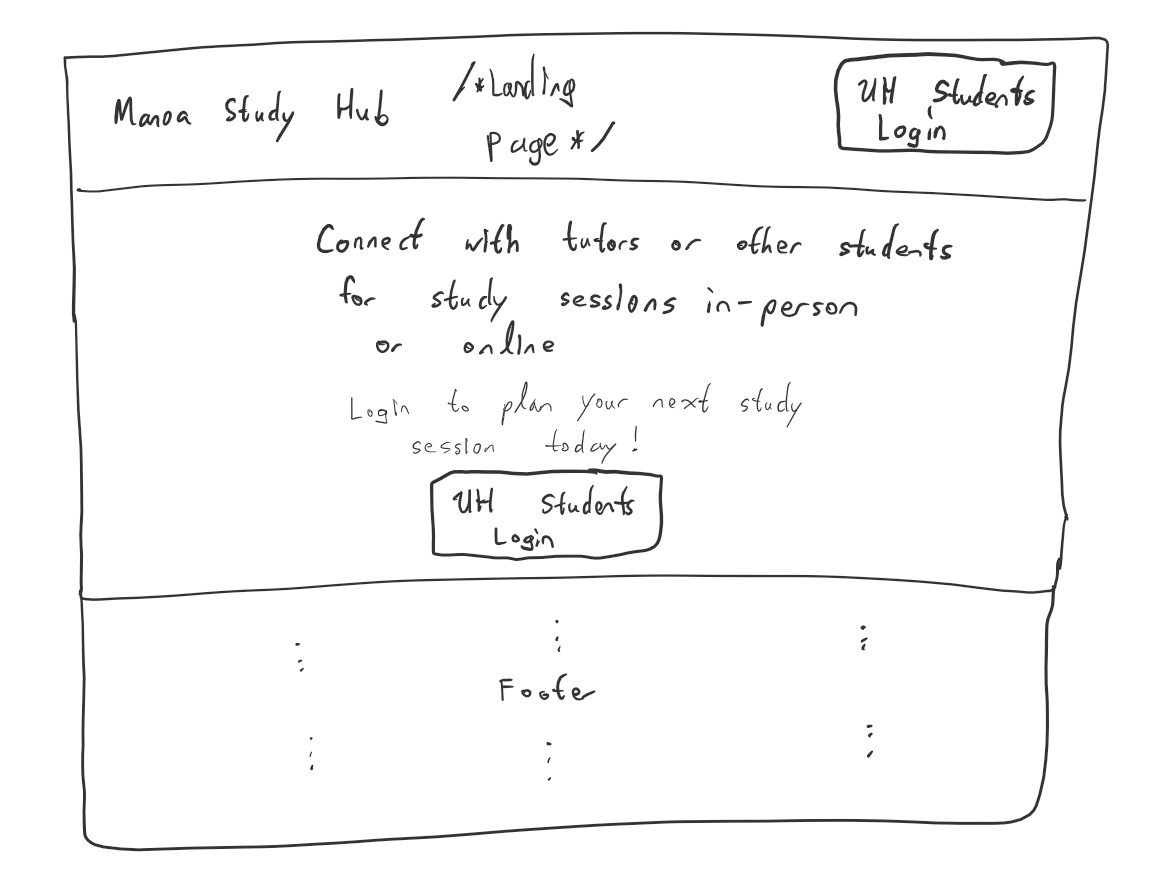 Manoa Study Hub
/*Landing
page*/
UH Students
Login
Connect with tutors or other students
for study sessions in-person
or online
Login to plan your next study
session today!
UH Students
Login
Footer